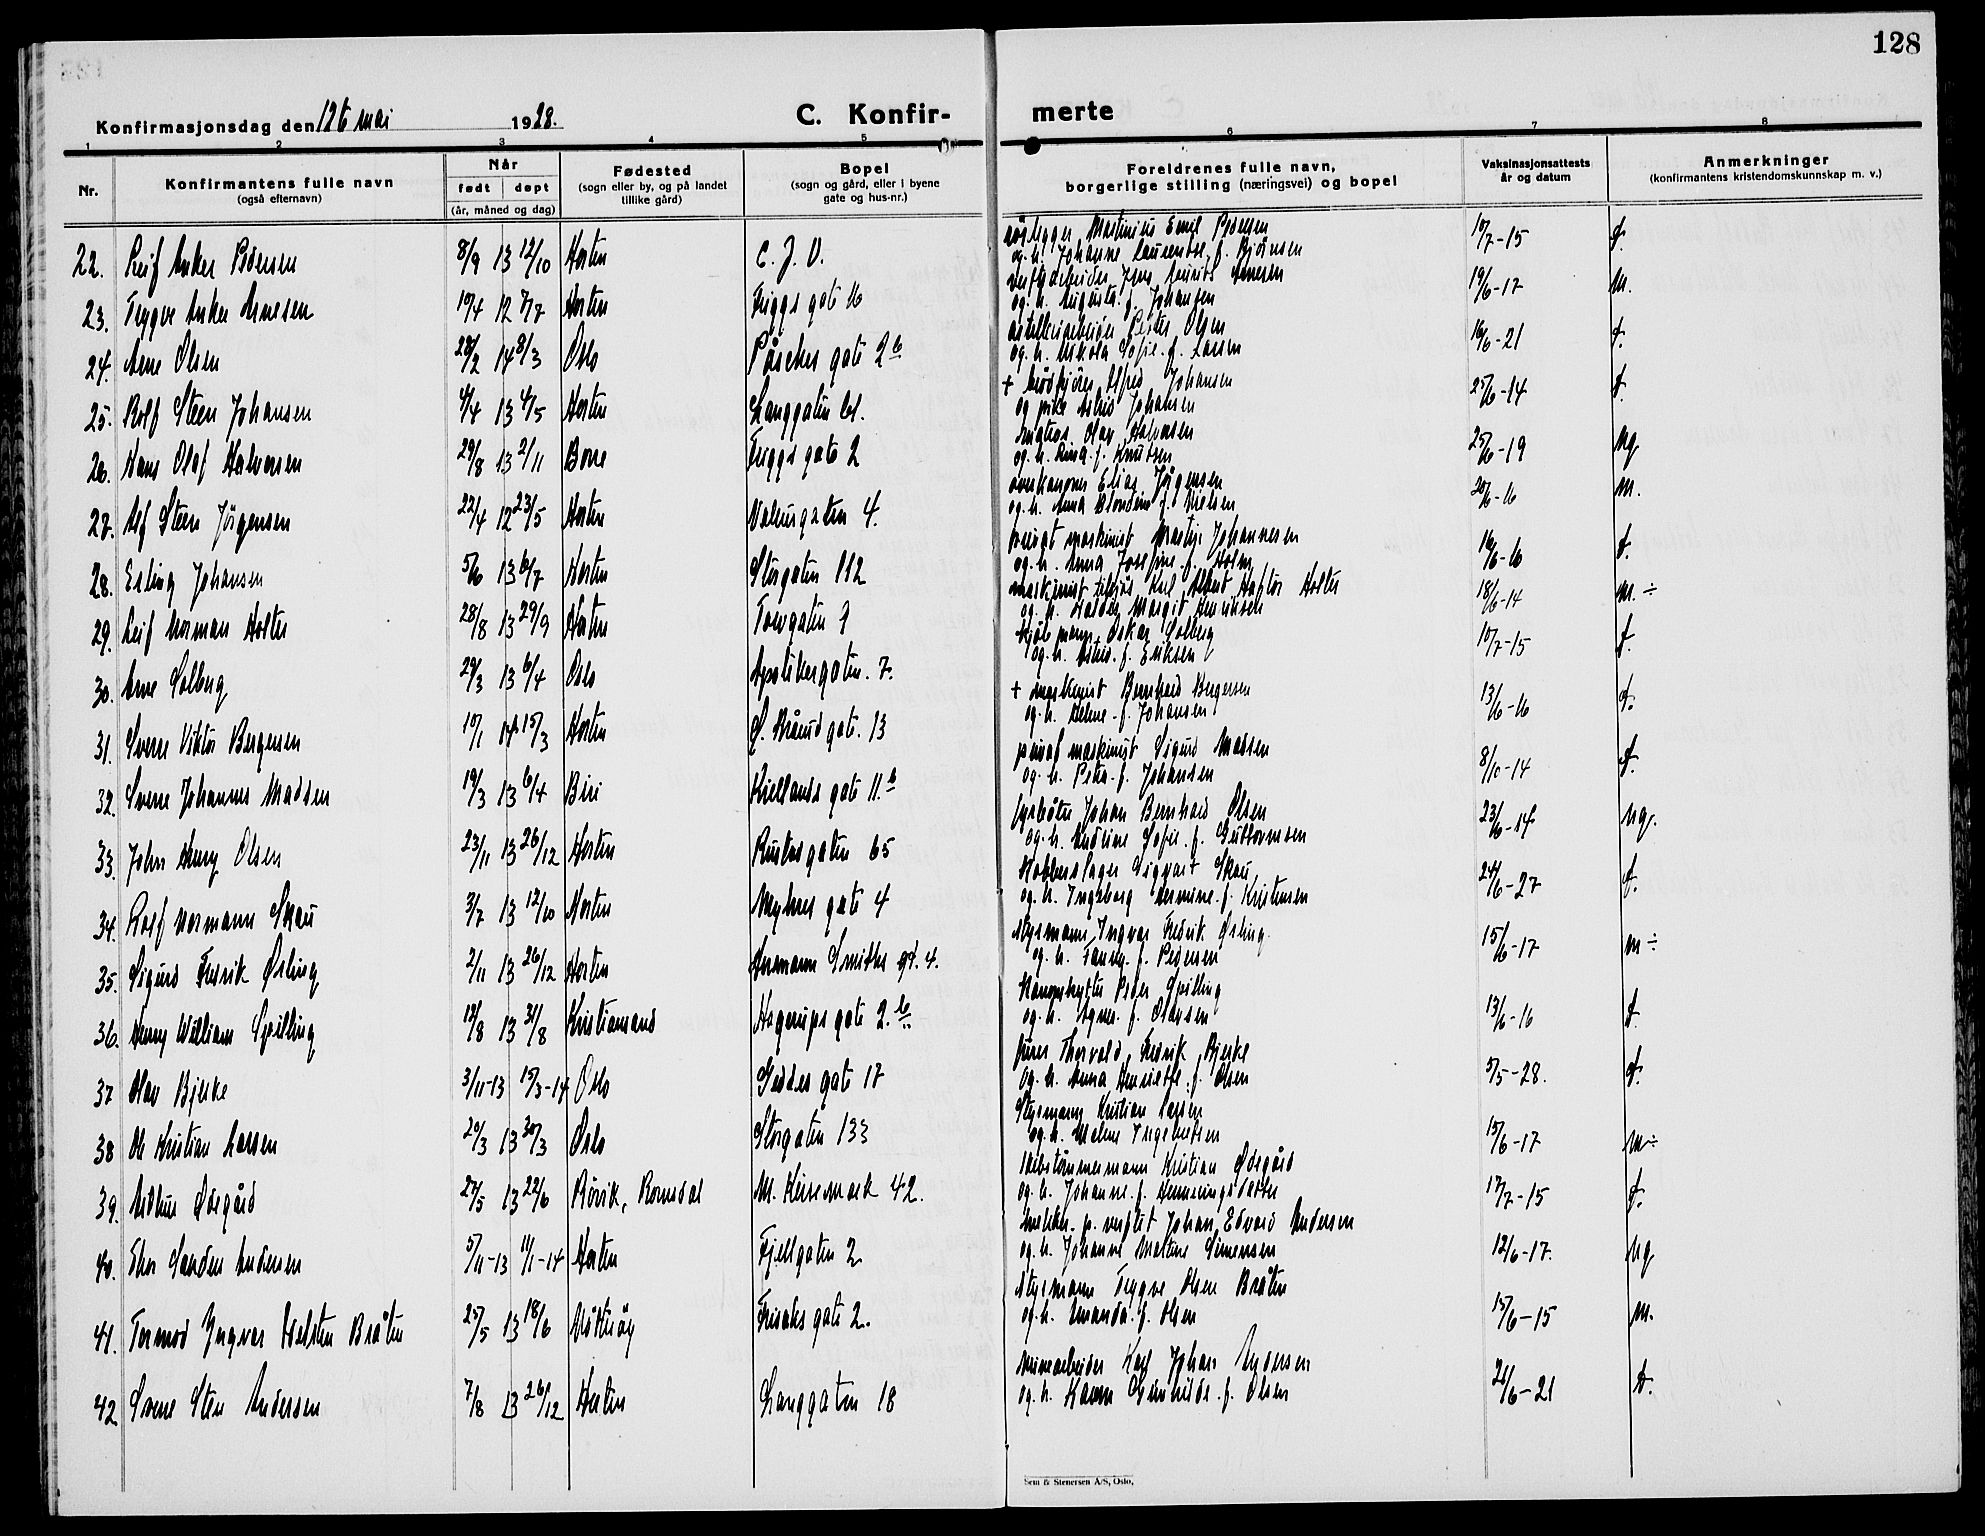 128
Konfirmasjonsdag den 1 26 mai 1928.
C. Konfir-
merte
1 2 3 4 5 6 7 8
Nr.
Konfirmantens fulle navn
(også efternavn)
Når
født døpt
(år, måned og dag)
Fødested
(sogn eller by, og på landet
tillike gård)
Bopel
(sogn og gård, eller i byene
gate og hus-nr.)
Foreldrenes fulle navn,
borgerlige stilling (næringsvei) og bopel
Vaksinasjonsattests
år og datum
Anmerkninger
(konfirmantens kristendomskunnskap m. v.)
Martinius Emil Pedersen
22. Leif Anker 8/9 13 12/10 Horten C. J. V. og h. Johanne Laurentse f. Bjørnsen 10/7-15
Jens Arnesen
23. Trygve Anker Arnesen 10/4 12 7/7 Horten Friggs gate 16 og h. Augusta f. Johansen 19/6-17 M.
Peter Olsen
24. Arne Olsen 28/2 14 8/3 Oslo Påsches gate 2b og h. Sofie f. Larsen 16/6-21
+ Alfred Johansen
25. Rolf Steen Johansen 4/4 13 4/5 Horten Langgaten 61. og pike Astrid Johansen 25/6-14
Olav Halvorsen
26. Hans Olaf Halvorsen 29/8 13 2/11 Borre Friggs gate 2 og h. f. Knutsen 25/6-19 Ng
Elias Jørgensen
27. Alf Steen Jørgensen 22/4 12 23/5 Horten 4. og h. Anna f. Nielsen 20/6-16 M.
privat maskinist Martin Johannesen
28. Erling Johansen 5/6 13 6/7 Horten Storgaten 112 og h. Anna Josefine f. Holm 16/6-16
maskinist Karl Albert Holter
29. Leif Norman Holter 28/8 13 29/9 Horten Torvgaten 7 og h. Margit Henriksen 18/6-14 M. ÷
Oskar Solberg
30. Arne Solberg 29/3 13 6/4 Oslo Apotekergaten. 7. og h. f. Eriksen 10/7-15
+ maskinist Bernhard Bergersen
31. Sverre Viktor Bergersen 10/1 14 15/3 Horten gate. 13 og h. Helene f. Johansen 13/6-16
privat maskinist Sigurd Madsen
32. Sverre Johannes Madsen 19/3 13 6/4 Biri Kiellands gate 11.b og h. Petra f. Johansen 8/10-14
fyrbøter Johan Bernhard Olsen
33. John Henry Olsen 23/11 13 26/12 Horten Rustadgaten 65 og h. Sofie f. Guttormsen 23/6-14 ng.
Kobberslager Sigvart Skau
34. Rolf Normann Skau 3/7 13 12/10 Horten Myhres gate 4 og h. Ingeborg Hermine f. Kristensen 24/6-27
Styrmann Ingvar Fredrik Ørling
35. Sigurd Fredrik Ørling 2/11 13 26/12 Horten Hermann Smiths gt. 4. og h. Fanny f. Pedersen 15/6-17 m ÷
Peder Spilling
36. Henry William Spilling 12/8 13 31/8 Kristiansand Hagerups gate 2.b og h. Agnes f. Olavsen 13/6-16
Thorvald Fredrik Bjerke
37 Olav Bjerke 3/11-13 15/3-14 Oslo Geddes gate 17 og h. Anna Henriette f. Olsen 5/5-28.
Styrmann Kristian Larsen
38 Ole Kristian Larsen 20/3 13 30/3 Oslo Storgaten 133 og h. Malene Ingebretsen 15/6-17 m ÷
Skibstømmermann Kristian Ødegård
39. Arthur Ødegård 27/5 13 22/6 Rørvik, Romsdal M. 42. og h. Johanne f. Henningsdatter 17/7-15
Johan Edvard Andersen
40. Thor Sanden Andersen 5/11-13 11/1-14 Horten Fjellgaten 2 og h. Johanne Martine Simensen 12/6-17. Ng
Styrmann Trygve Olsen Bråten
41. Tormod Yngvar Helsten Bråten 25/5 13 18/6 Nøtterøy gate 2. og h. Amanda f. Olsen 15/6-15 m.
minearbeider Karl Johan Andersen
42 Sverre Sten Andersen 7/8 13 26/12 Horten Langgaten 18 og h. Karen Gunhilde f. Olsen 26/6-21
Sem & Stenersen A/S, Oslo.